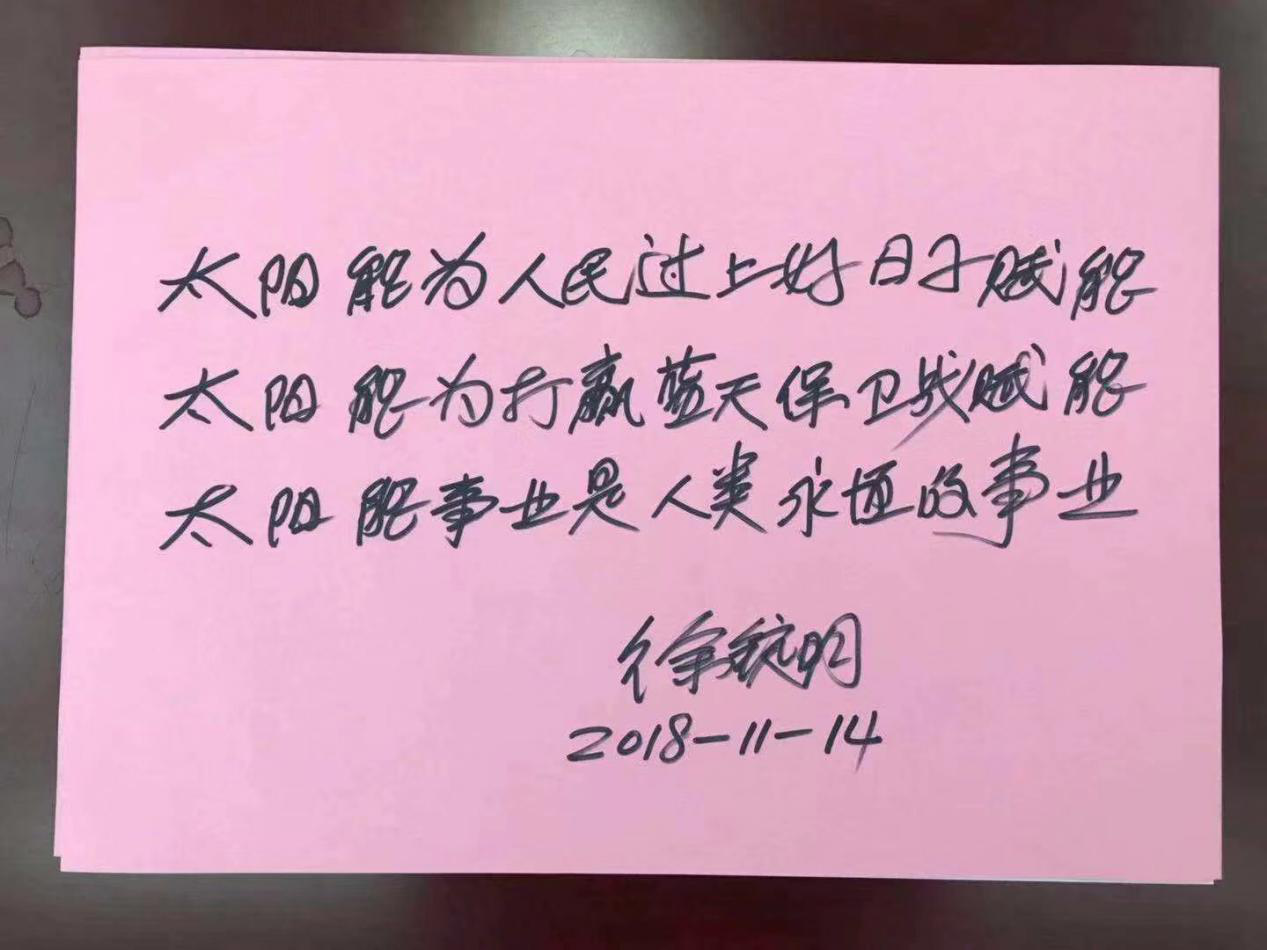 太阳能为人民过上好日子赋能
太阳能为打赢蓝天保卫战赋能
太阳能事业是人类永恒的事业
徐锭明
2018-11-14